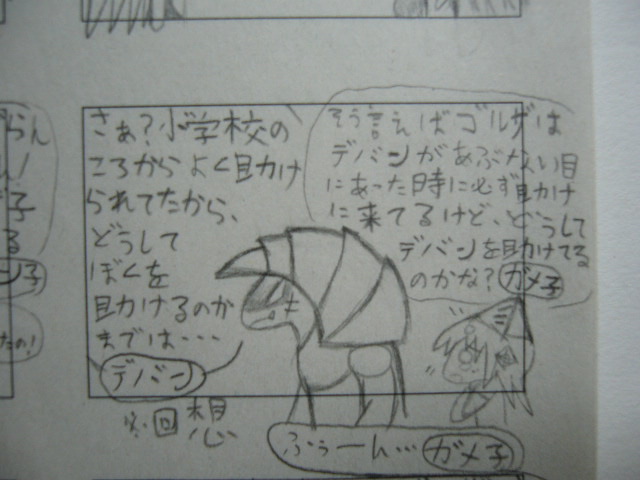 そう言えばゴルザは
デバンがあぶない目
にあった時に必ず助け
に来てるけど、どうして
デバンを助けてる
のかな？ガメ子
さぁ？小学校の
ころからよく助け
られてたから、
どうして
ぼくを
助けるのか
までは・・・
デバン
※回想
ふぅーん…ガメ子
らん
子
る
ン子
たの！